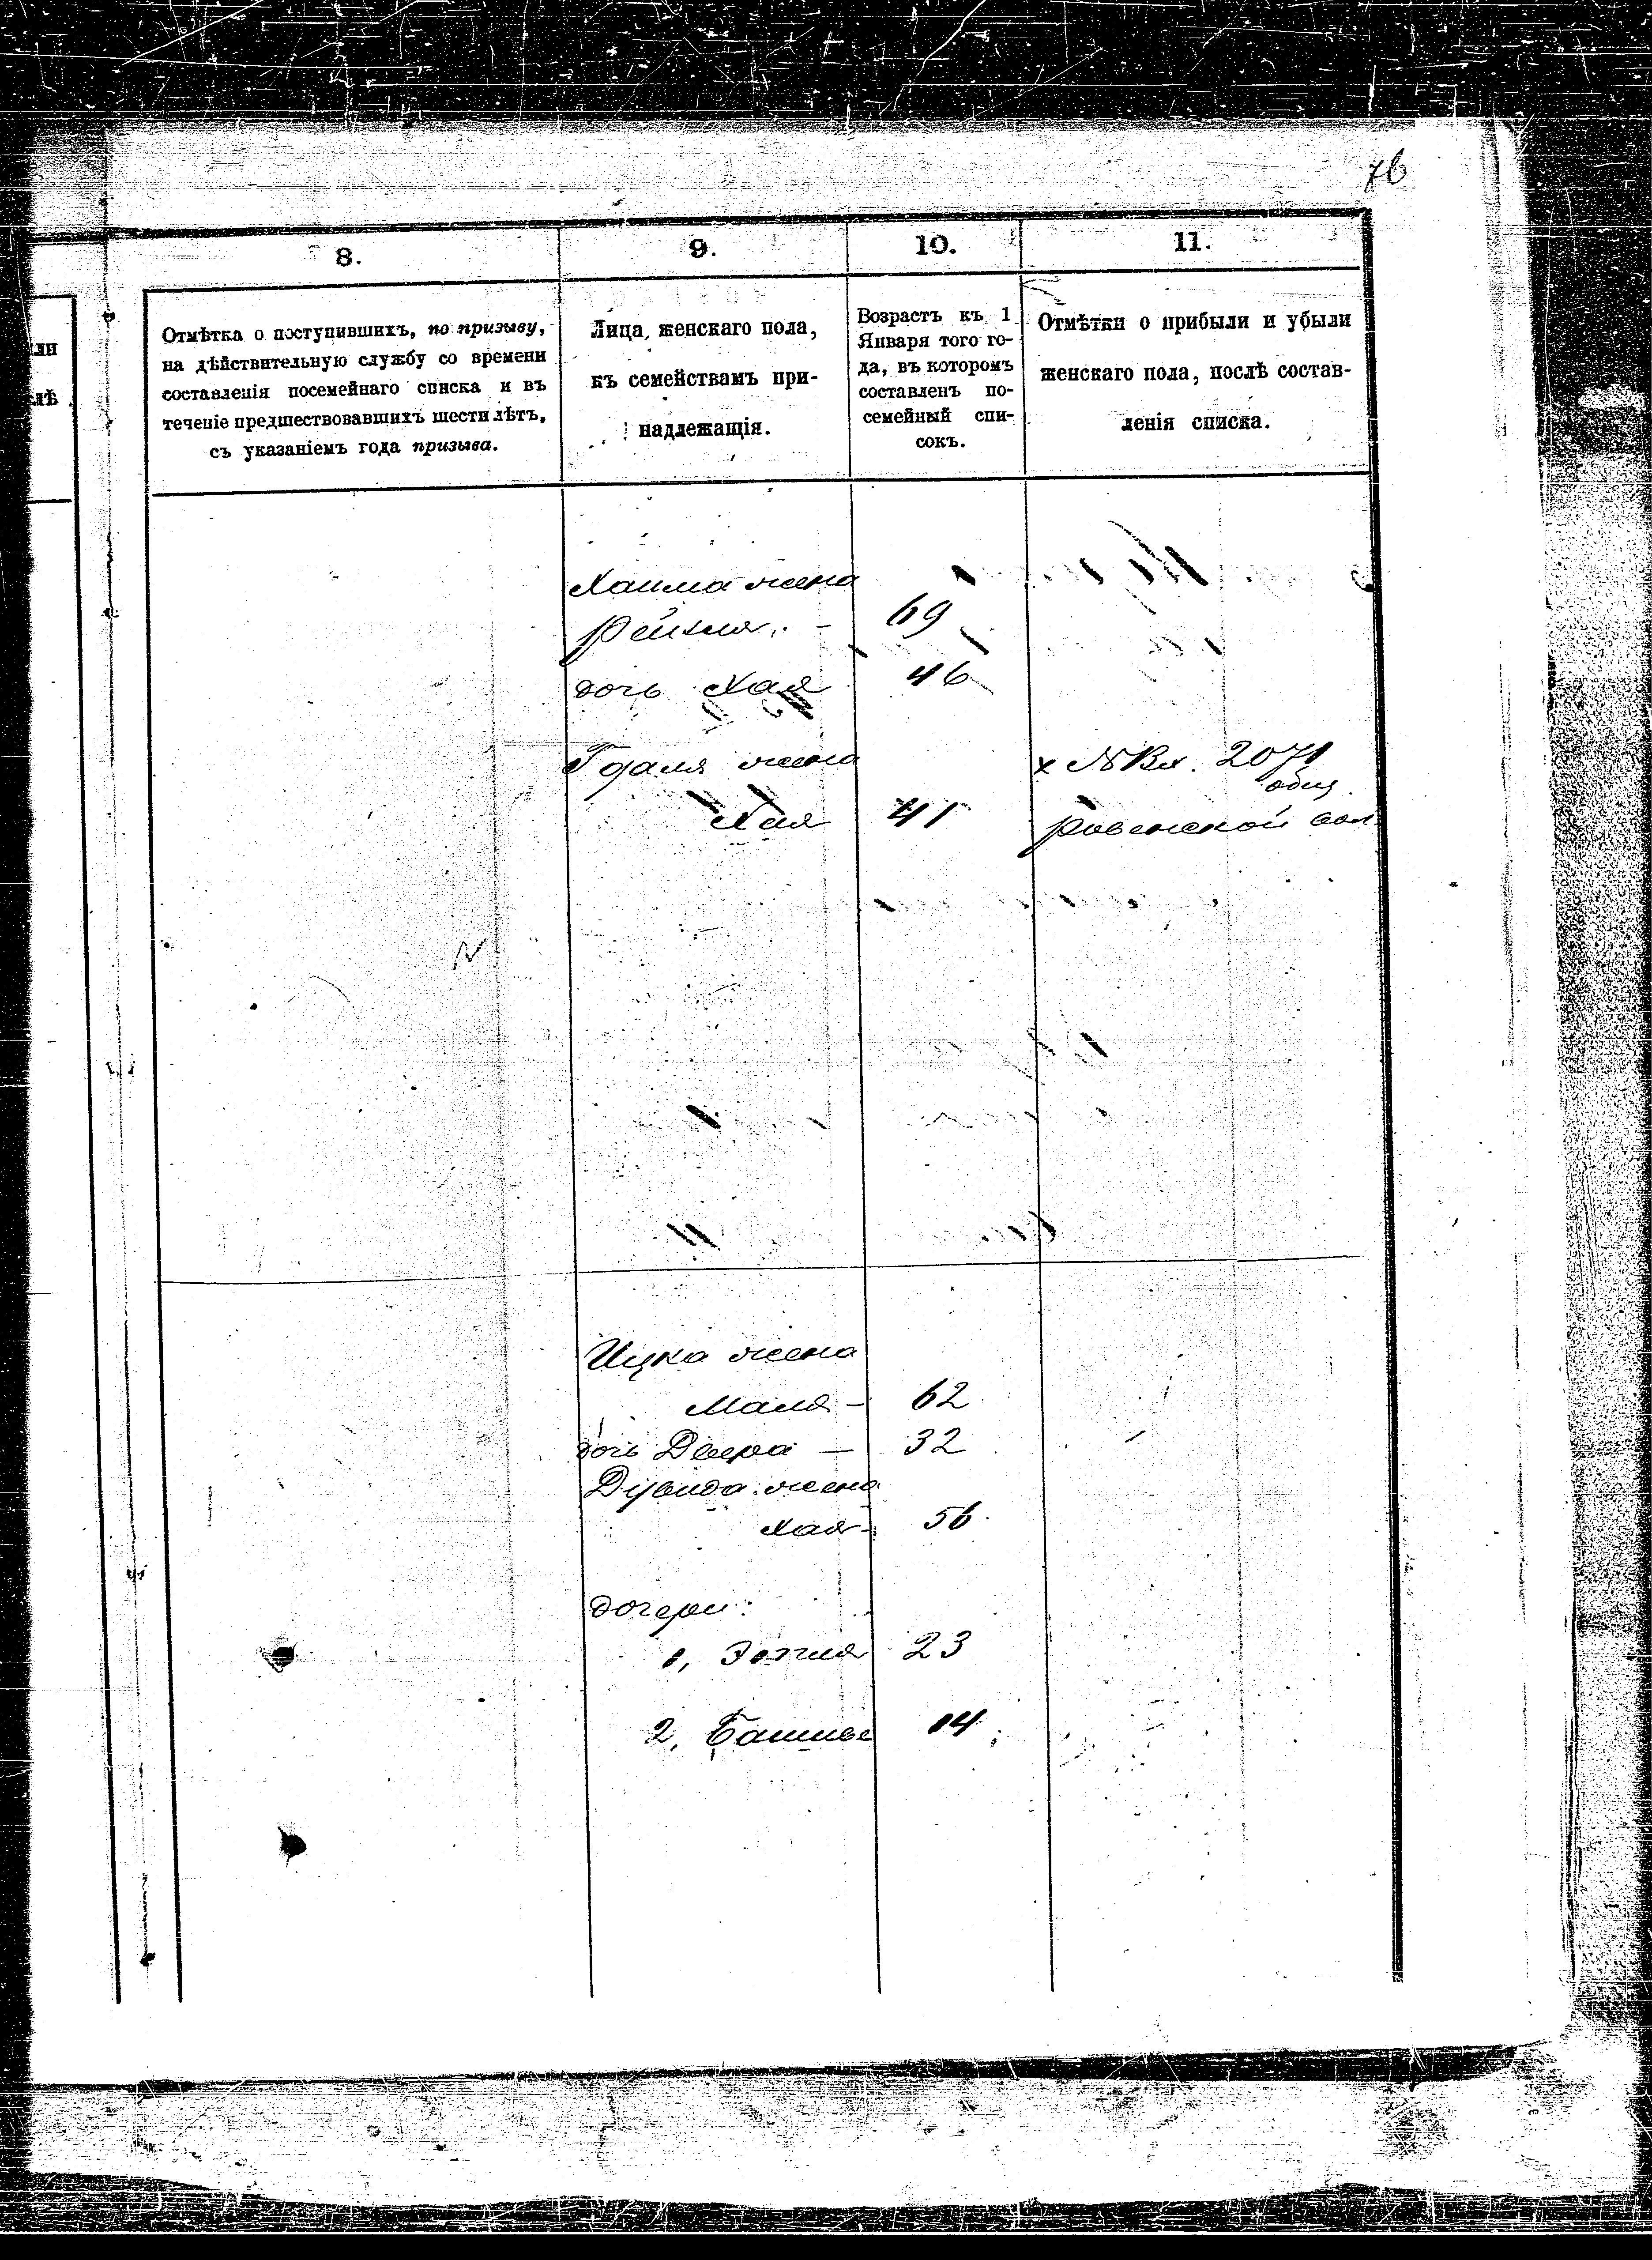 76
8.
9.
10.
11.
ли
лѣ
Отмѣтка о поступившихъ, по призыву,
на дѣйствительную службу со времени
составленія посемейнаго списка и въ
теченіе предшествовавшихъ шести лѣтъ,
съ указаніемъ года призыва.
Лица женскаго пола,
къ семействамъ при-
надлежащія.
Возрастъ къ 1
Января того го-
да, въ которомъ
составленъ по-
семейный спи-
сокъ.
Отмѣтки о прибыли и убыли
женскаго пола, послѣ состав-
ленія списка.
Хаима жена
Рейзля. – 69
дочь Хая 46
Годаля жена
Хая 41
х № Вх. 2071
общ.
Ровенской вол.
Ицка жена
Маля – 62
дочь Двера – 32
Дувида жена
Хая – 56
дочери:
1, 23
2, 14